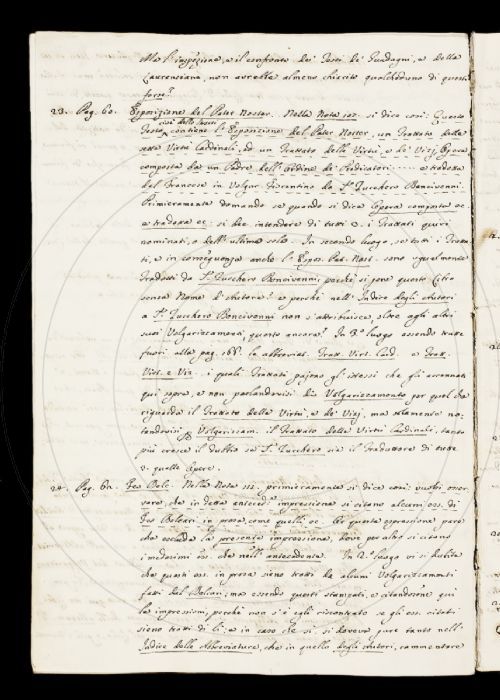 Ma l'inspezione, e il confronto dei Testi dei Guadagni, e della
Laurenziana, non avrebbe almeno chiarito qualcheduno di questi
forse?
23. Pag. 60. Esposizione del Pater Noster. Nella Nota 107. si dice così: Questo
cioè dello Strozzi
Testo contiene l'Esposizione del Pater Noster, un Trattato delle
sette Virtù Cardinali, ed un Trattato delle Virtù, e de' Vizj, Opera
composta da un Padre dell'Ordine de' Predicatori ..... e tradotta
del Franzese in Volgar Fiorentino da Sr. Zucchero Bencivenni.
Primieramente domando se quando si dice Opera composta ec.
e tradotta ec. si dee intendere di tutti e i Trattati quivi
nominati, o dell'ultimo solo. In secondo luogo, se tutti i Tratta
ti, e in conseguenza anche l'Espos. Pat. Nost. sono ugualmente
Tradotti da Sr. Zucchero Bencivenni, perchè si pone questo Libro
senza Nome d'Autore? e perchè nell'Indice degli Autori
a Sr. Zucchero Bencivenni non s'attribuisce, oltre agli altri
suoi Volgarizzamenti, questo ancora? In 3o. luogo essendo tratte
fuori alla pag. 168. le abbreviat. Tratt. Virt. Card. e Tratt.
Virt. e Viz. i quali Trattati pajono gli stessi che gli accennati
qui sopra, e non parlandovisi di Volgarizzamento per quel che
riguarda il Trattato delle Virtù, e de' Vizj, ma solamente no-
tandovisi Volgarizzam. il Trattato delle Virtù Cardinali, tanto
più cresce il dubbio se Sr. Zucchero sia il Traduttore di tutte
e quelle Opere.
24. Pag. 60. Feo Belc. Nella Nota 112. primieramente si dice così: vuolsi osser
vare, che in detta anteced. impressione si citano alcuni es. di
Feo Belcari in prosa, come quelli, ec. Or questa espressione pare
che escluda la presente impressione, dove per altro si citano
i medesimi es. che nell'antecedente. In 2o. luogo vi si dubita
che questi es. in prosa sieno tratti da alcuni Volgarizzamenti
fatti dal Belcari; ma essendo questi stampati, e citandosene qui
le impressioni, perchè non s'è egli riscontrato se gli es. citati
sieno tratti di lì; e in caso che sì, si doveva pure tanto nell'
Indice delle Abbreviature, che in quello degli Autori, rammentare